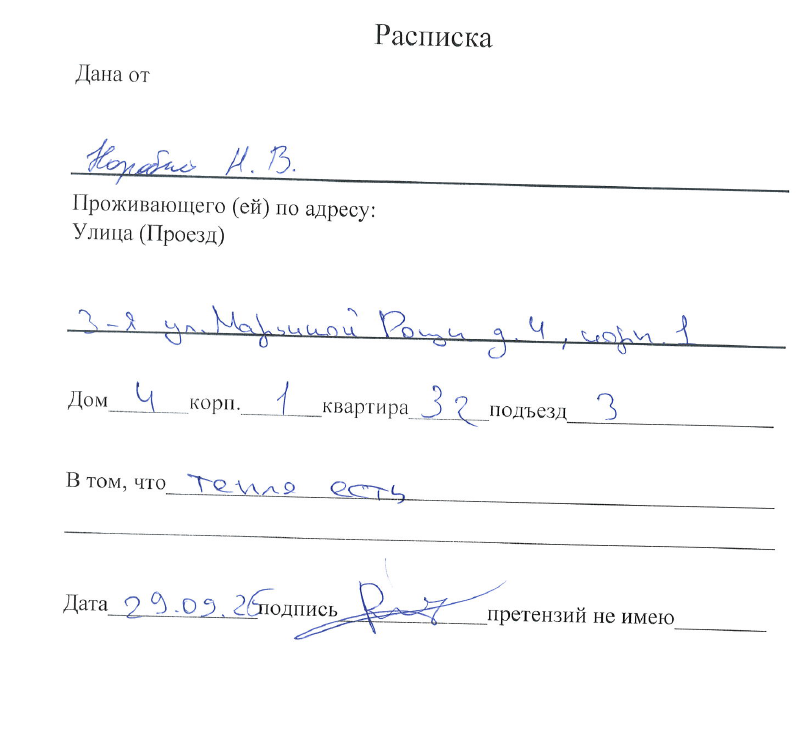 Расписка
Дана от
Н. В.
Проживающего (ей) по адресу:
Улица (Проезд)
3-я ул. Марьиной Рощи д. 4, корп. 1
Дом 4 корп. 1 квартира 32 подъезд 3
В том, что тепло есть
Дата 29.09.25 подпись претензий не имею